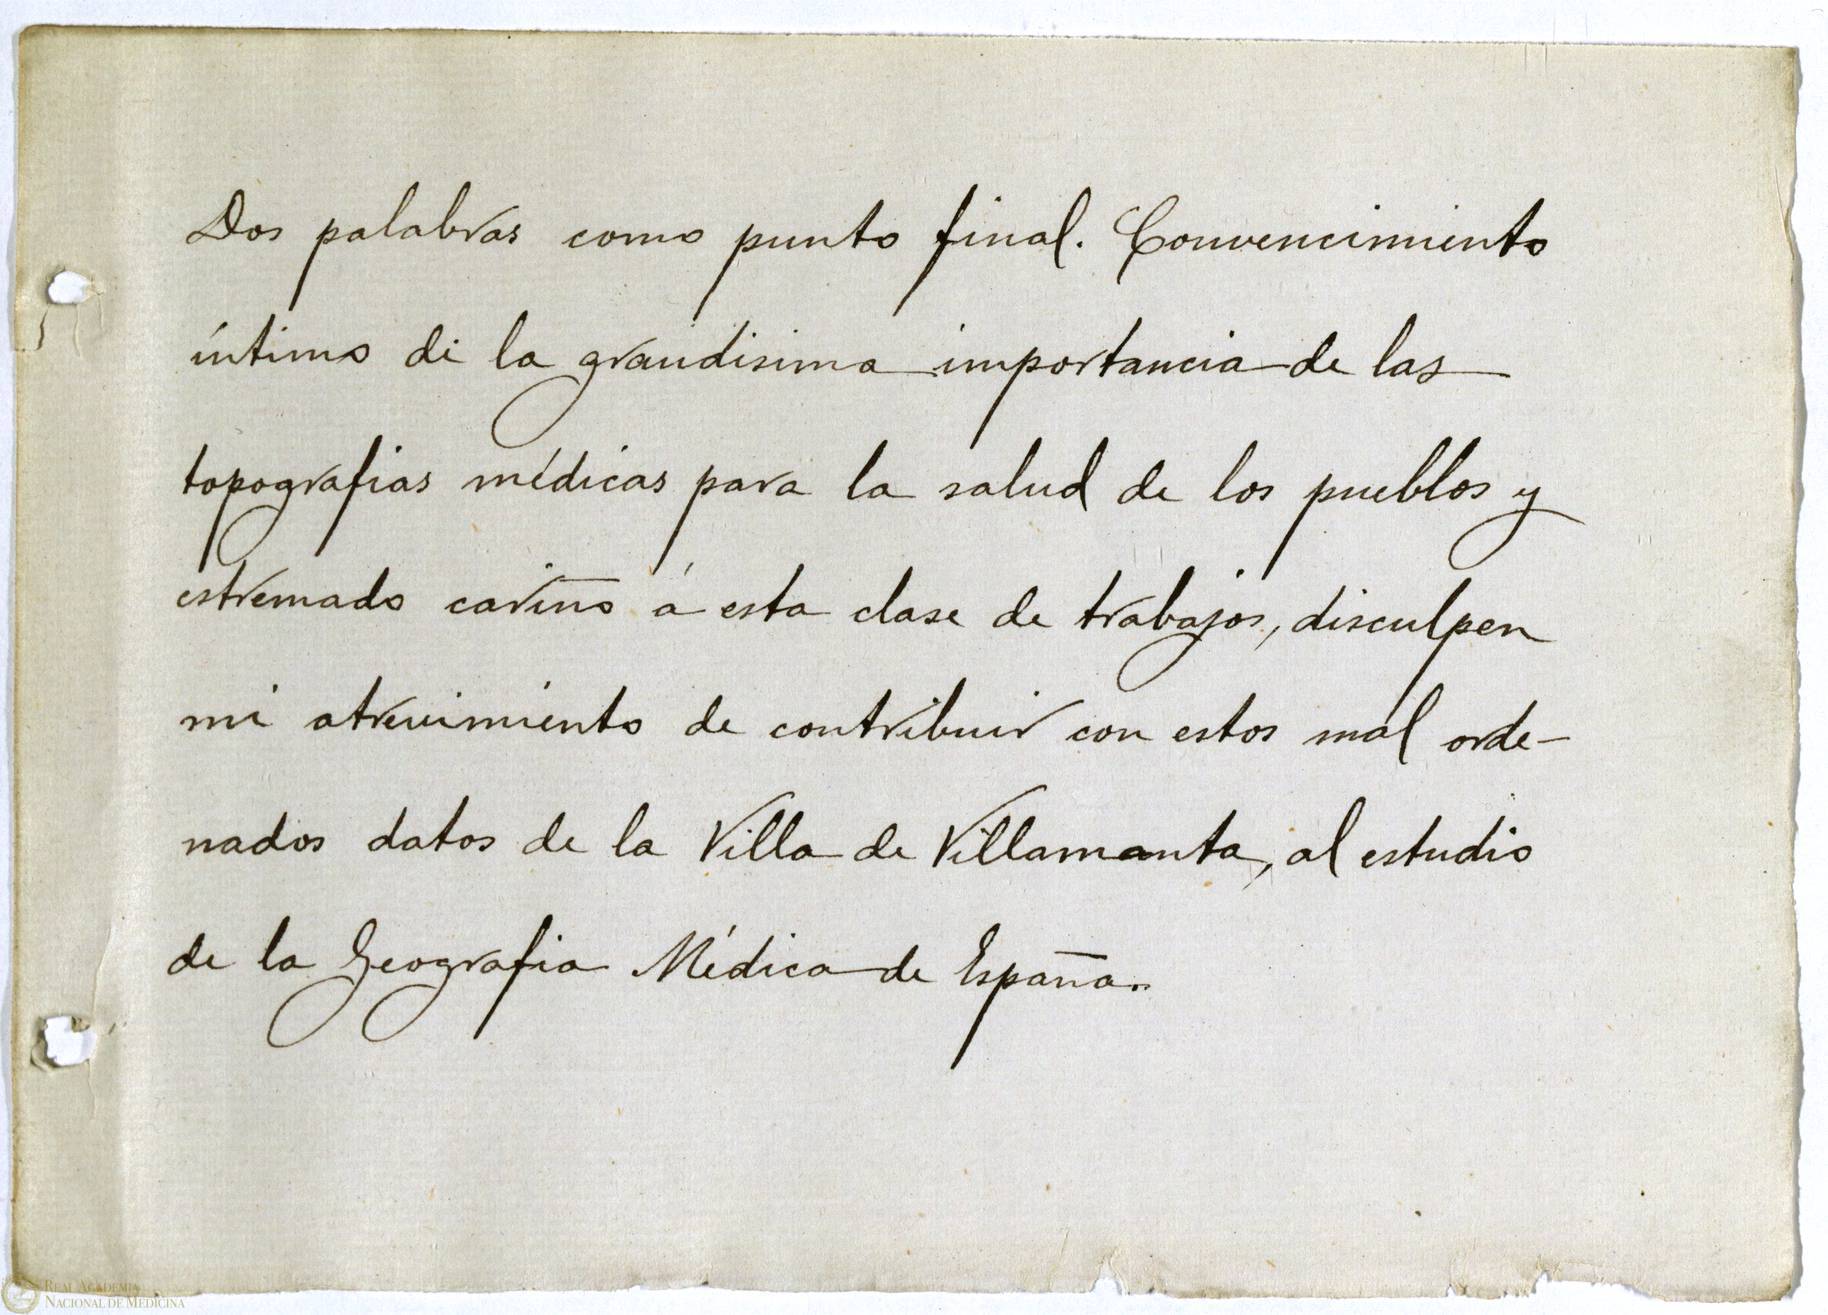 Dos palabras como punto final. Convencimiento
íntimo de la grandisima importancia de las
topografias médicas para la salud de los pueblos y
estremado cariño á esta clase de trabajos, disculpen
mi atrevimiento de contribuir con estos mal orde-
nados datos de la Villa de Villamanta, al estudio
de la Geografia Médica de España.
REAL ACADEMIA
NACIONAL DE MEDICINA